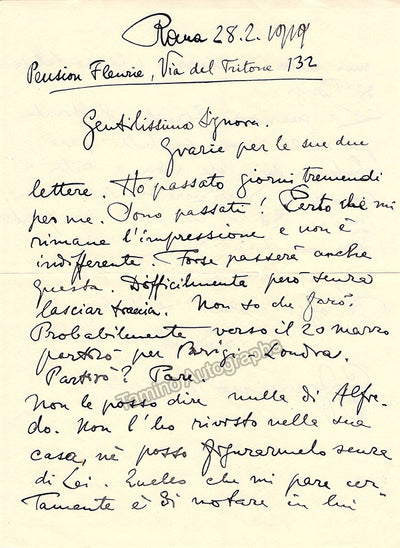 Roma 28.2.1919
Pension Fleurie, Via del Tritone 132
Gentilissima Signora.
Grazie per le sue due
lettere. Ho passato giorni tremendi
per me. Sono passati! Certo che mi
rimane l'impressione e non è
indifferente. Forse passerà anche
questa. Difficilmente però senza
lasciar traccia. Non so che farò.
Probabilmente verso il 20 marzo
partirò per Parigi - Londra.
Partirò? Pare.
Tamino Autographs
Non le posso dire nulla di Alfre-
do. Non l'ho rivisto nella sua
casa, nè posso figurarmelo senza
di Lei. Quello che mi pare cer-
tamente è di notare in lui